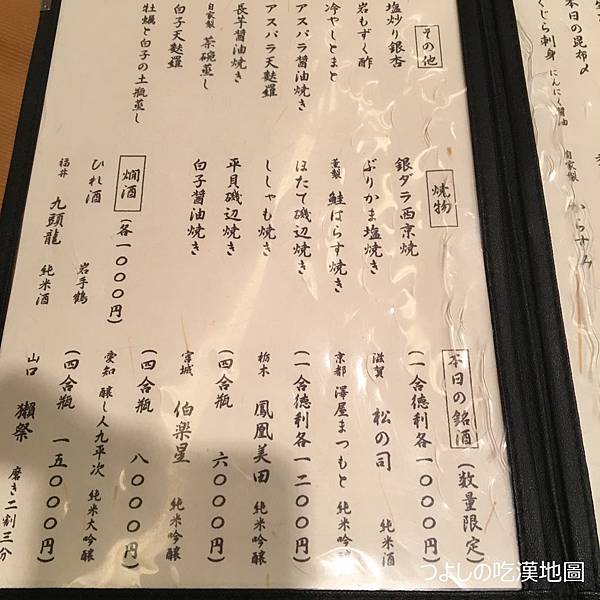 本日の昆布〆
くじら刺身 にんにく醤油
自家製 からすみ
その他
塩炒り銀杏
岩もずく酢
冷やしとまと
アスパラ醤油焼き
アスパラ天麩羅
長芋醤油焼き
自家製 茶碗蒸し
白子天麩羅
牡蠣と白子の土瓶蒸し
焼物
銀ダラ西京焼
ぶりかま塩焼き
薫製 鮭はらす焼き
ほたて磯辺焼き
ししゃも焼き
平貝磯辺焼き
白子醤油焼き
燗酒 (各一〇〇〇円)
ひれ酒 岩手鶴
福井 九頭龍 純米酒
本日の銘酒 (数量限定)
(一合徳利各一〇〇〇円)
滋賀 松の司 純米酒
京都 澤屋まつもと 純米吟醸
(一合徳利各一二〇〇円)
栃木 鳳凰美田 純米吟醸
(四合瓶 六〇〇〇円)
宮城 伯楽星 純米吟醸
(四合瓶 八〇〇〇円)
愛知 醸し人九平次 純米大吟醸
(四合瓶 一五〇〇〇円)
山口 獺祭 磨き二割三分
つよしの吃漢地圖